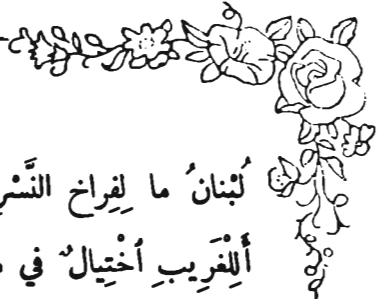 لُبْنانُ ما لِفِراخِ النَّسْرِ
أَلِلْغَرِيبِ ٱخْتِيالٌ في